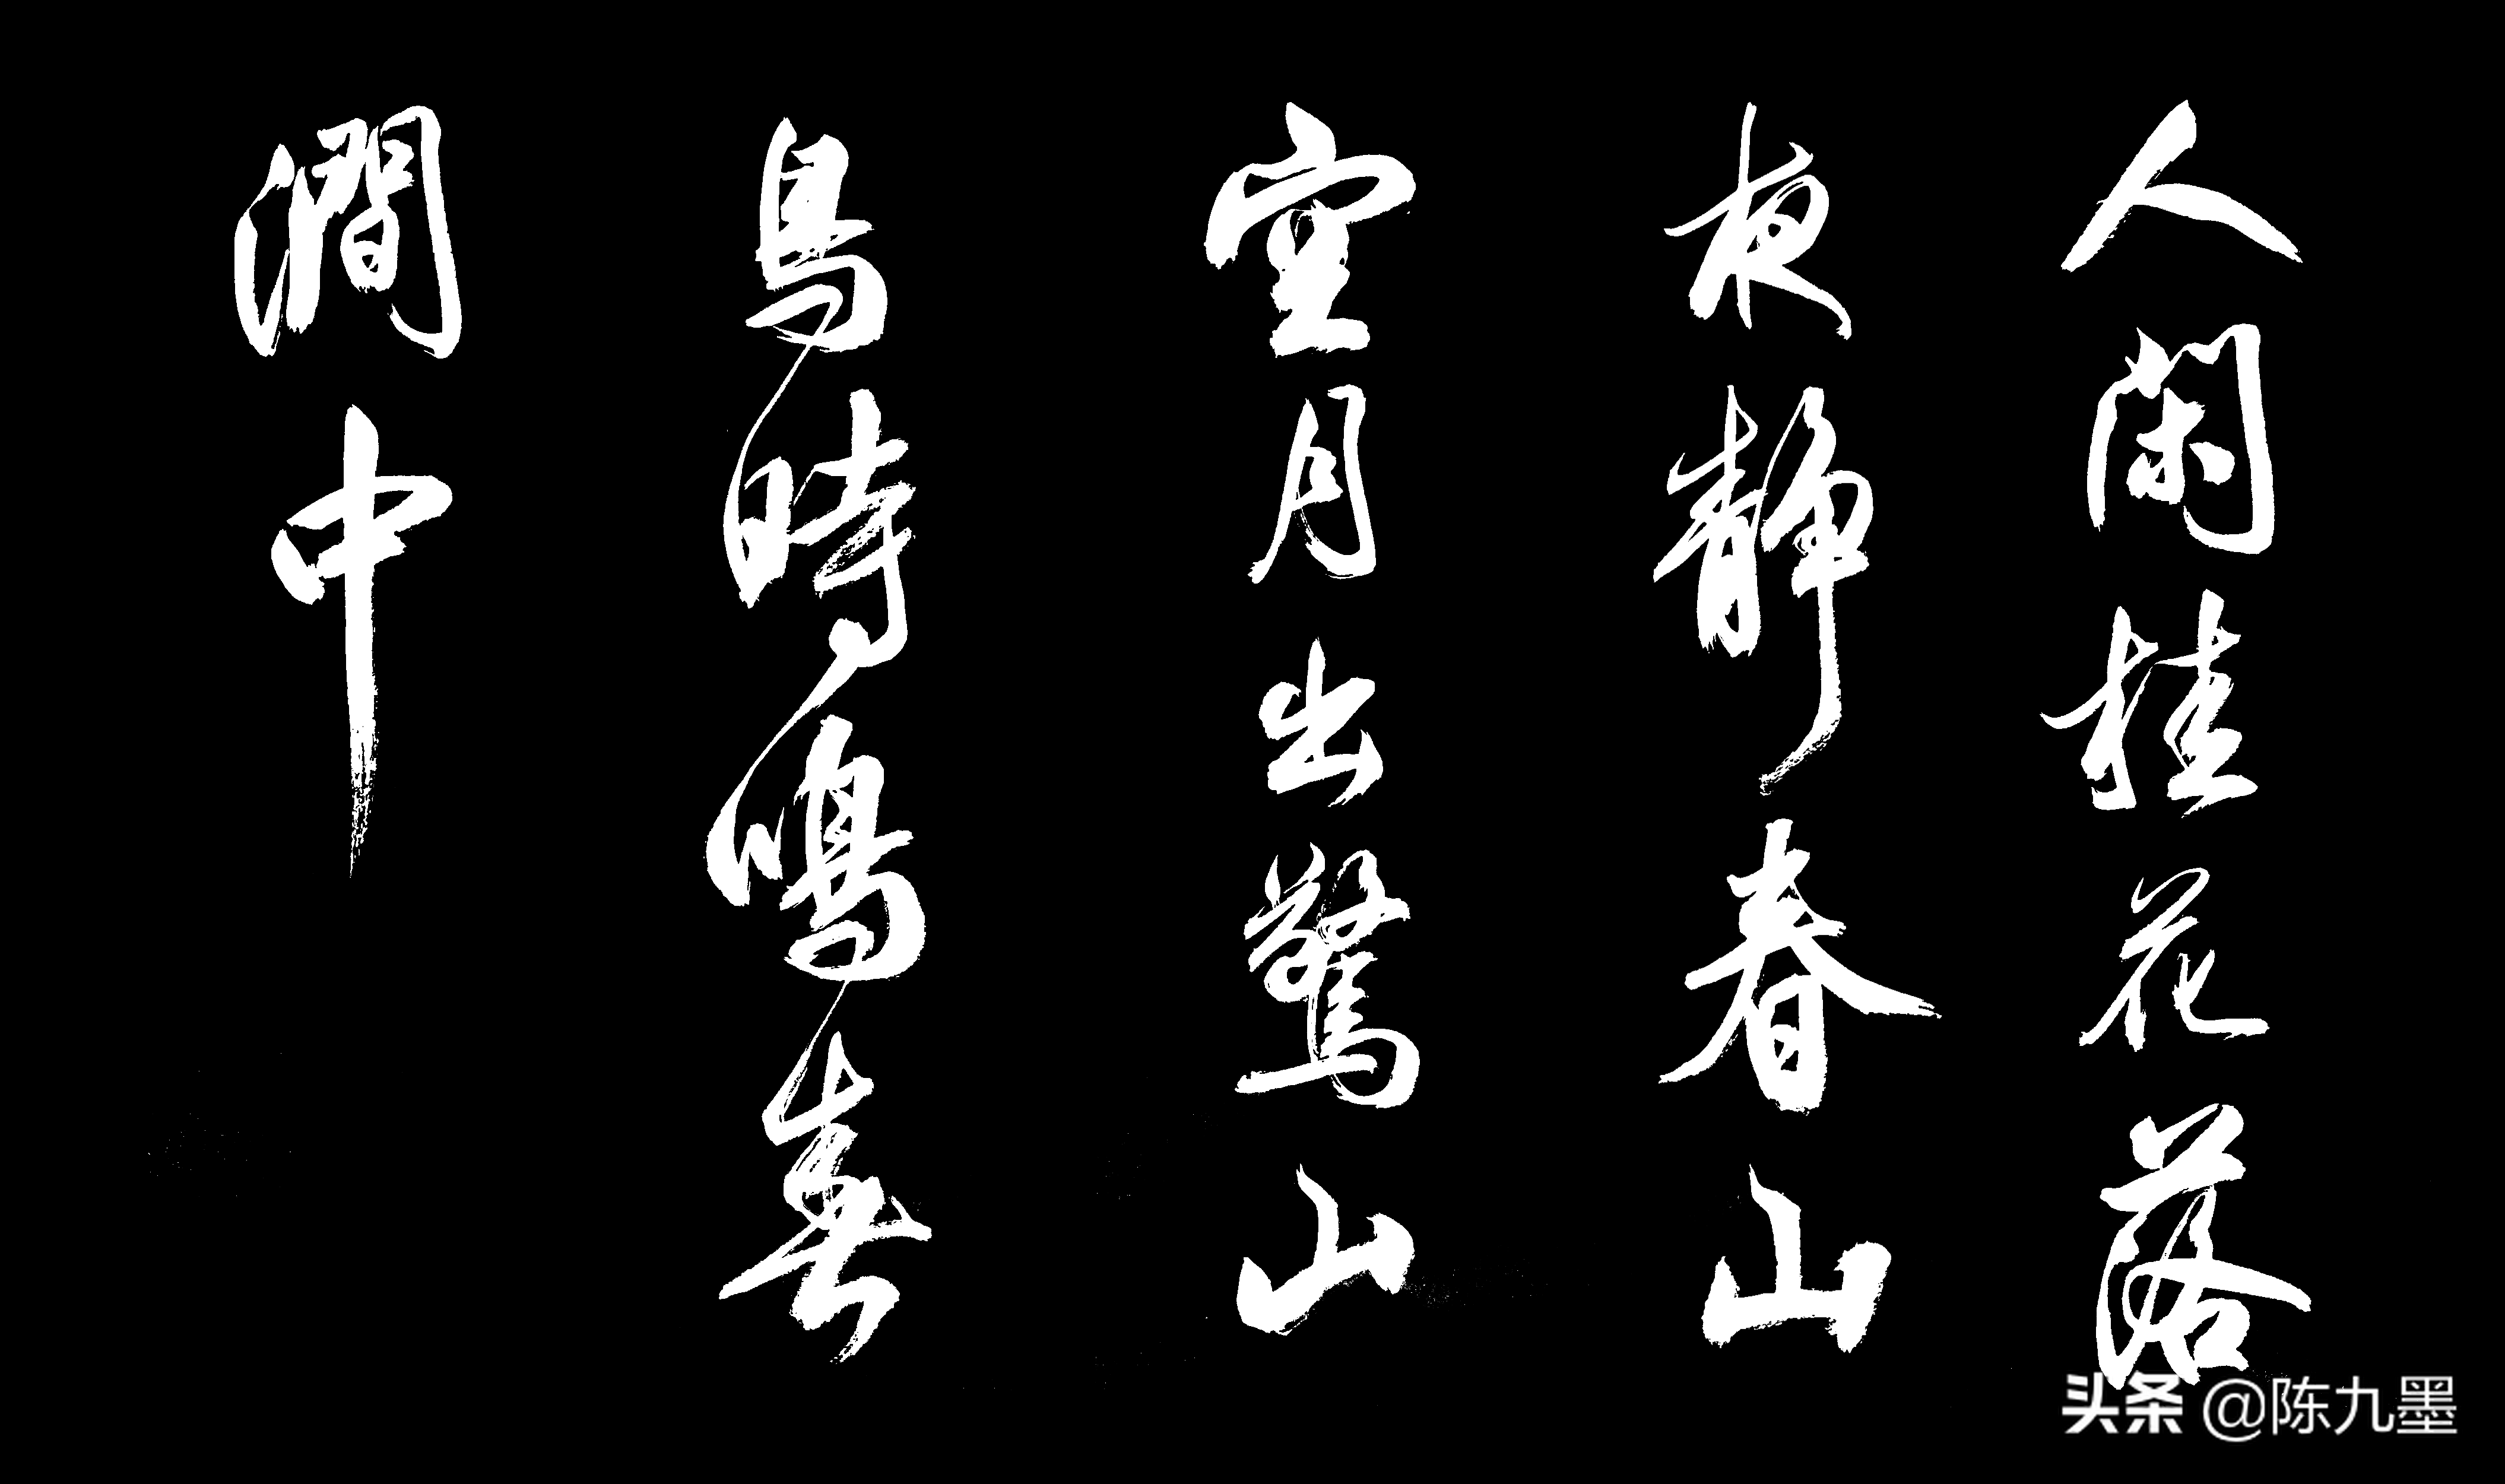 人閑桂花落
夜靜春山
空月出驚山
鳥時鳴春
澗中
头条 @陈九墨